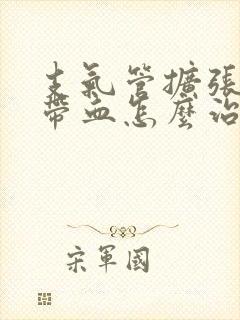 支氣管擴張
帶血怎麼治
宋軍國